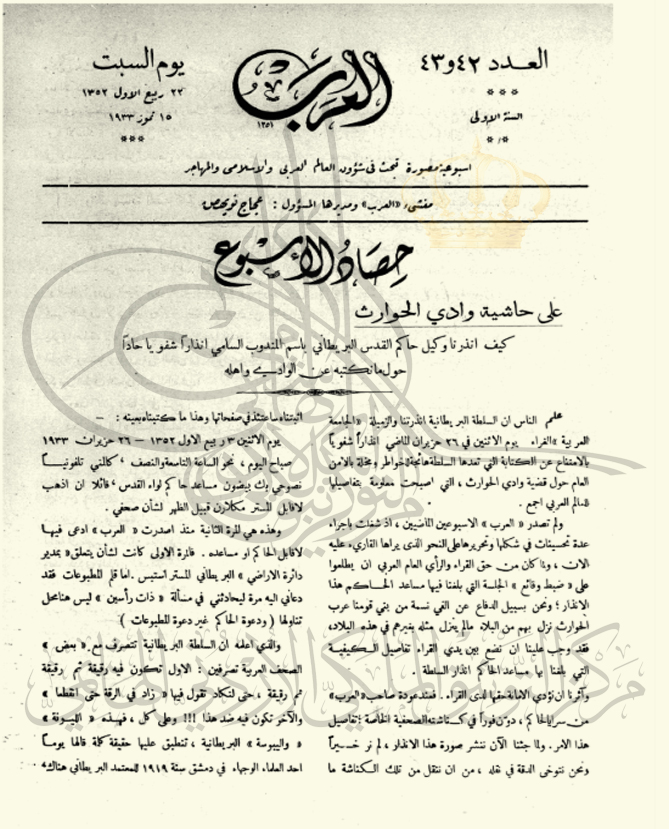 العدد ٤٢ و٤٣
السنة الاولى
العرب
١٣٥١
يوم السبت
٢٢ ربيع الاول ١٣٥٢
١٥ تموز ١٩٣٣
اسبوعية مصورة تبحث في شؤون العالم العربي والاسلامي والمهاجر
منشىء «العرب» ومديرها المسؤول : عجاج نويهض
حصاد الأسبوع
على حاشية وادي الحوارث
كيف انذرنا وكيل حاكم القدس البريطاني باسم المندوب السامي انذاراً شفوياً حاداً
حول ما نكتبه عن الوادي واهله
علم الناس ان السلطة البريطانية انذرتنا والزميلة «الجامعة
العربية» الغراء . يوم الاثنين في ٢٦ حزيران الماضي انذاراً شفوياً
بالامتناع عن الكتابة التي تعدها السلطة هائجة الخواطر ومخلة بالامن
العام حول قضية وادي الحوارث ، التي اصبحت معلومة بتفاصيلها
للعالم العربي اجمع .
ولم تصدر « العرب » الاسبوعين الماضيين ، اذ شغلت باجراء
عدة تحسينات في شكلها وتحريرها على النحو الذي يراها القارىء عليه
الآن ، ولما كان من حق القراء والرأي العام العربي ان يطلعوا
على « ضبط وقائع » الجلسة التي بلغنا فيها مساعد الحاكم هذا
الانذار ؛ ونحن بسبيل الدفاع عن الفي نسمة من بني قومنا عرب
الحوارث نزل بهم من البلاء مالم ينزل مثله بغيرهم في هذه البلاد،
فقد وجب علينا ان نضع بين يدي القراء تفاصيل الكيفية
التي بلغنا بها مساعد الحاكم انذار السلطة .
وآثرنا ان نؤدي الابانة حقها لدى القراء . فعند عودة صاحب «العرب»
من سرايا الحاكم ، دوّن فوراً في كناشته الصحفية الخاصة ؛ تفاصيل
هذا الامر . ولما جئنا الآن ننشر صورة هذا الانذار ، لم نر خيراً
ونحن نتوخى الدقة في نقله ، من ان ننقل من تلك الكناشة ما
اثبتناه ساعتئذ في صفحاتها وهذا ما كتبناه بعينه : —
يوم الاثنين ٣ ربيع الاول ١٣٥٢ – ٢٦ حزيران ١٩٣٣
صباح اليوم ، نحو الساعة التاسعة والنصف ، كالمني تلفونياً
نصوحي بك بيضون مساعد حاكم لواء القدس ، قائلا ان اذهب
لاقابل المستر مكلارن قبيل الظهر لشأن صحفي .
وهذه هي المرة الثانية منذ اصدرت « العرب » ادعى فيها
لاقابل الحاكم او مساعده . فالمرة الاولى كانت لشأن يتعلق «بمدير
دائرة الاراضي » البريطاني المستر استبس . اما قلم المطبوعات فقد
دعاني اليه مرة ليحادثني في مسألة « ذات رأسين » ليس هنا محل
تناولها ( ودعوة الحاكم غير دعوة للمطبوعات )
والذي اعلمه ان السلطة البريطانية تتصرف مع « بعض »
الصحف العربية تصرفين : الاول تكون فيه رقيقة ثم رقيقة
ثم رقيقة ، حتى لتكاد تقول فيها « زاد في الرقة حتى انقطعا »
والآخر تكون فيه ضد هذا !!! وعلى كل ، فهذه « الليونة »
« واليبوسة » البريطانية ، تنطبق عليها حقيقة كلمة قالها يوماً
احد العلماء الوجهاء في دمشق سنة ١٩١٩ للمعتمد البريطاني هناك،